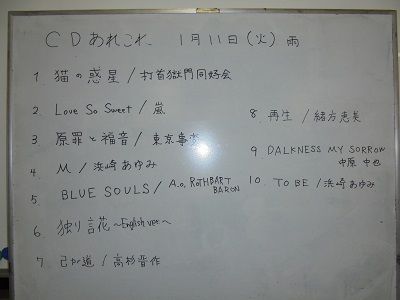 CDあれこれ 1月11日(火) 雨
1 猫の惑星/打首獄門同好会
2 Love So Sweet/嵐
3 原罪と福音/東京事変
4 M/浜崎あゆみ
5 BLUE SOULS/A.o, ROTHBART BARON
6 独り言花〜English ver.〜
7 己が道/高杉晋作
8 再生/緒方恵美
9 DALKNESS MY SORROW
中原中也
10 TO BE/浜崎あゆみ